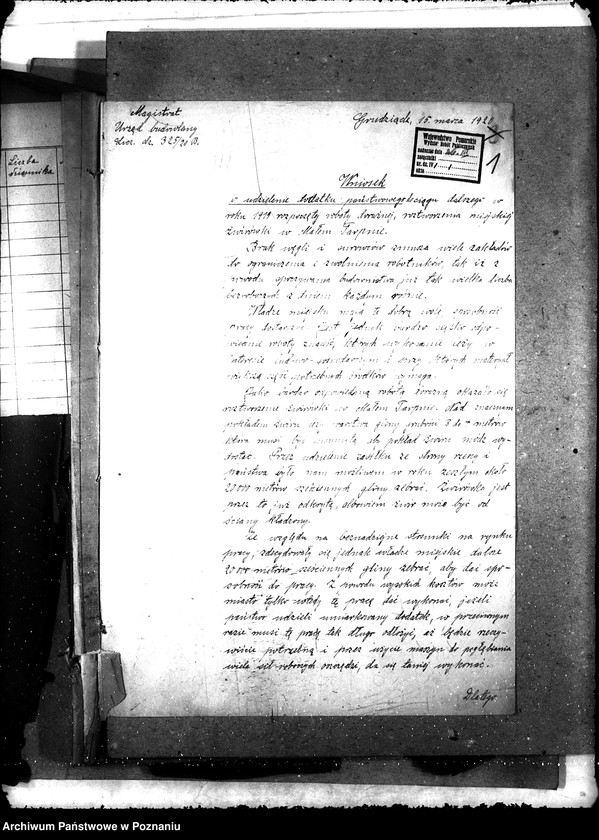 Liczba
dziennika
Magistrat
Urząd budowlany
Licz. dz. 325/20 B.
Grudziądz, 15. marca 1920
Województwo Pomorskie
Wydział Robót Publicznych
nadeszło dnia
załączniki
nr. dz. IV
1
Wniosek
o udzielenie dodatku państwowego ciągu dalszego w
roku 1919 rozpoczętej roboty doraźnej, roztworzenia miejskiej
żwirówki w Małem Tarpnie.
Brak węgli i surowców zmusza wiele zakładów
do ograniczenia i zwolnienia robotników, tak iż z
powodu spoczywania budownictwa już tak wielka liczba
bezrobotnych z dniem każdym rośnie.
Władze miejskie mają tę dobrą wolę sposobność
pracy dostarczać. Jest jednak bardzo ciężko odpo-
wiednie roboty znaleźć, których wykonanie leży w
interesie i przy których materjał
większą część potrzebnych środków wymaga.
Jako bardzo odpowiednią robotą doraźną okazało się
roztworzenie żwirówki w Małem Tarpnie. Nad znacznym
pokładem żwiru leży warstwa gliny grubości 8 do metrów
która musi być usunięta, aby pokład żwiru módz wy-
dostać. Przez udzielenie zasiłku ze strony rzeszy i
państwa było nam możliwem w roku zeszłym około
20000 metrów sześciennych gliny zebrać. Żwirówka jest
przez to już odkrytą, albowiem żwir może być od
ściany kładzony.
Ze względu na beznadziejne stosunki na rynku
pracy, zdecydowały się jednak władze miejskie dalsze
20000 metrów sześciennych gliny zebrać, aby dać spo-
sobność do pracy. Z powodu wysokich kosztów może
miasto tylko wtedy tę pracę dać wykonać, jeżeli
państwo udzieli umiarkowany dodatek, w przeciwnym
razie musi tę pracę tak długo odłożyć, aż będzie rzeczy-
wiście potrzebną i przez użycie maszyn do pogłębiania
wiele sił roboczych oszczędzi, da się taniej wykonać.
Dlatego
Archiwum Państwowe w Poznaniu